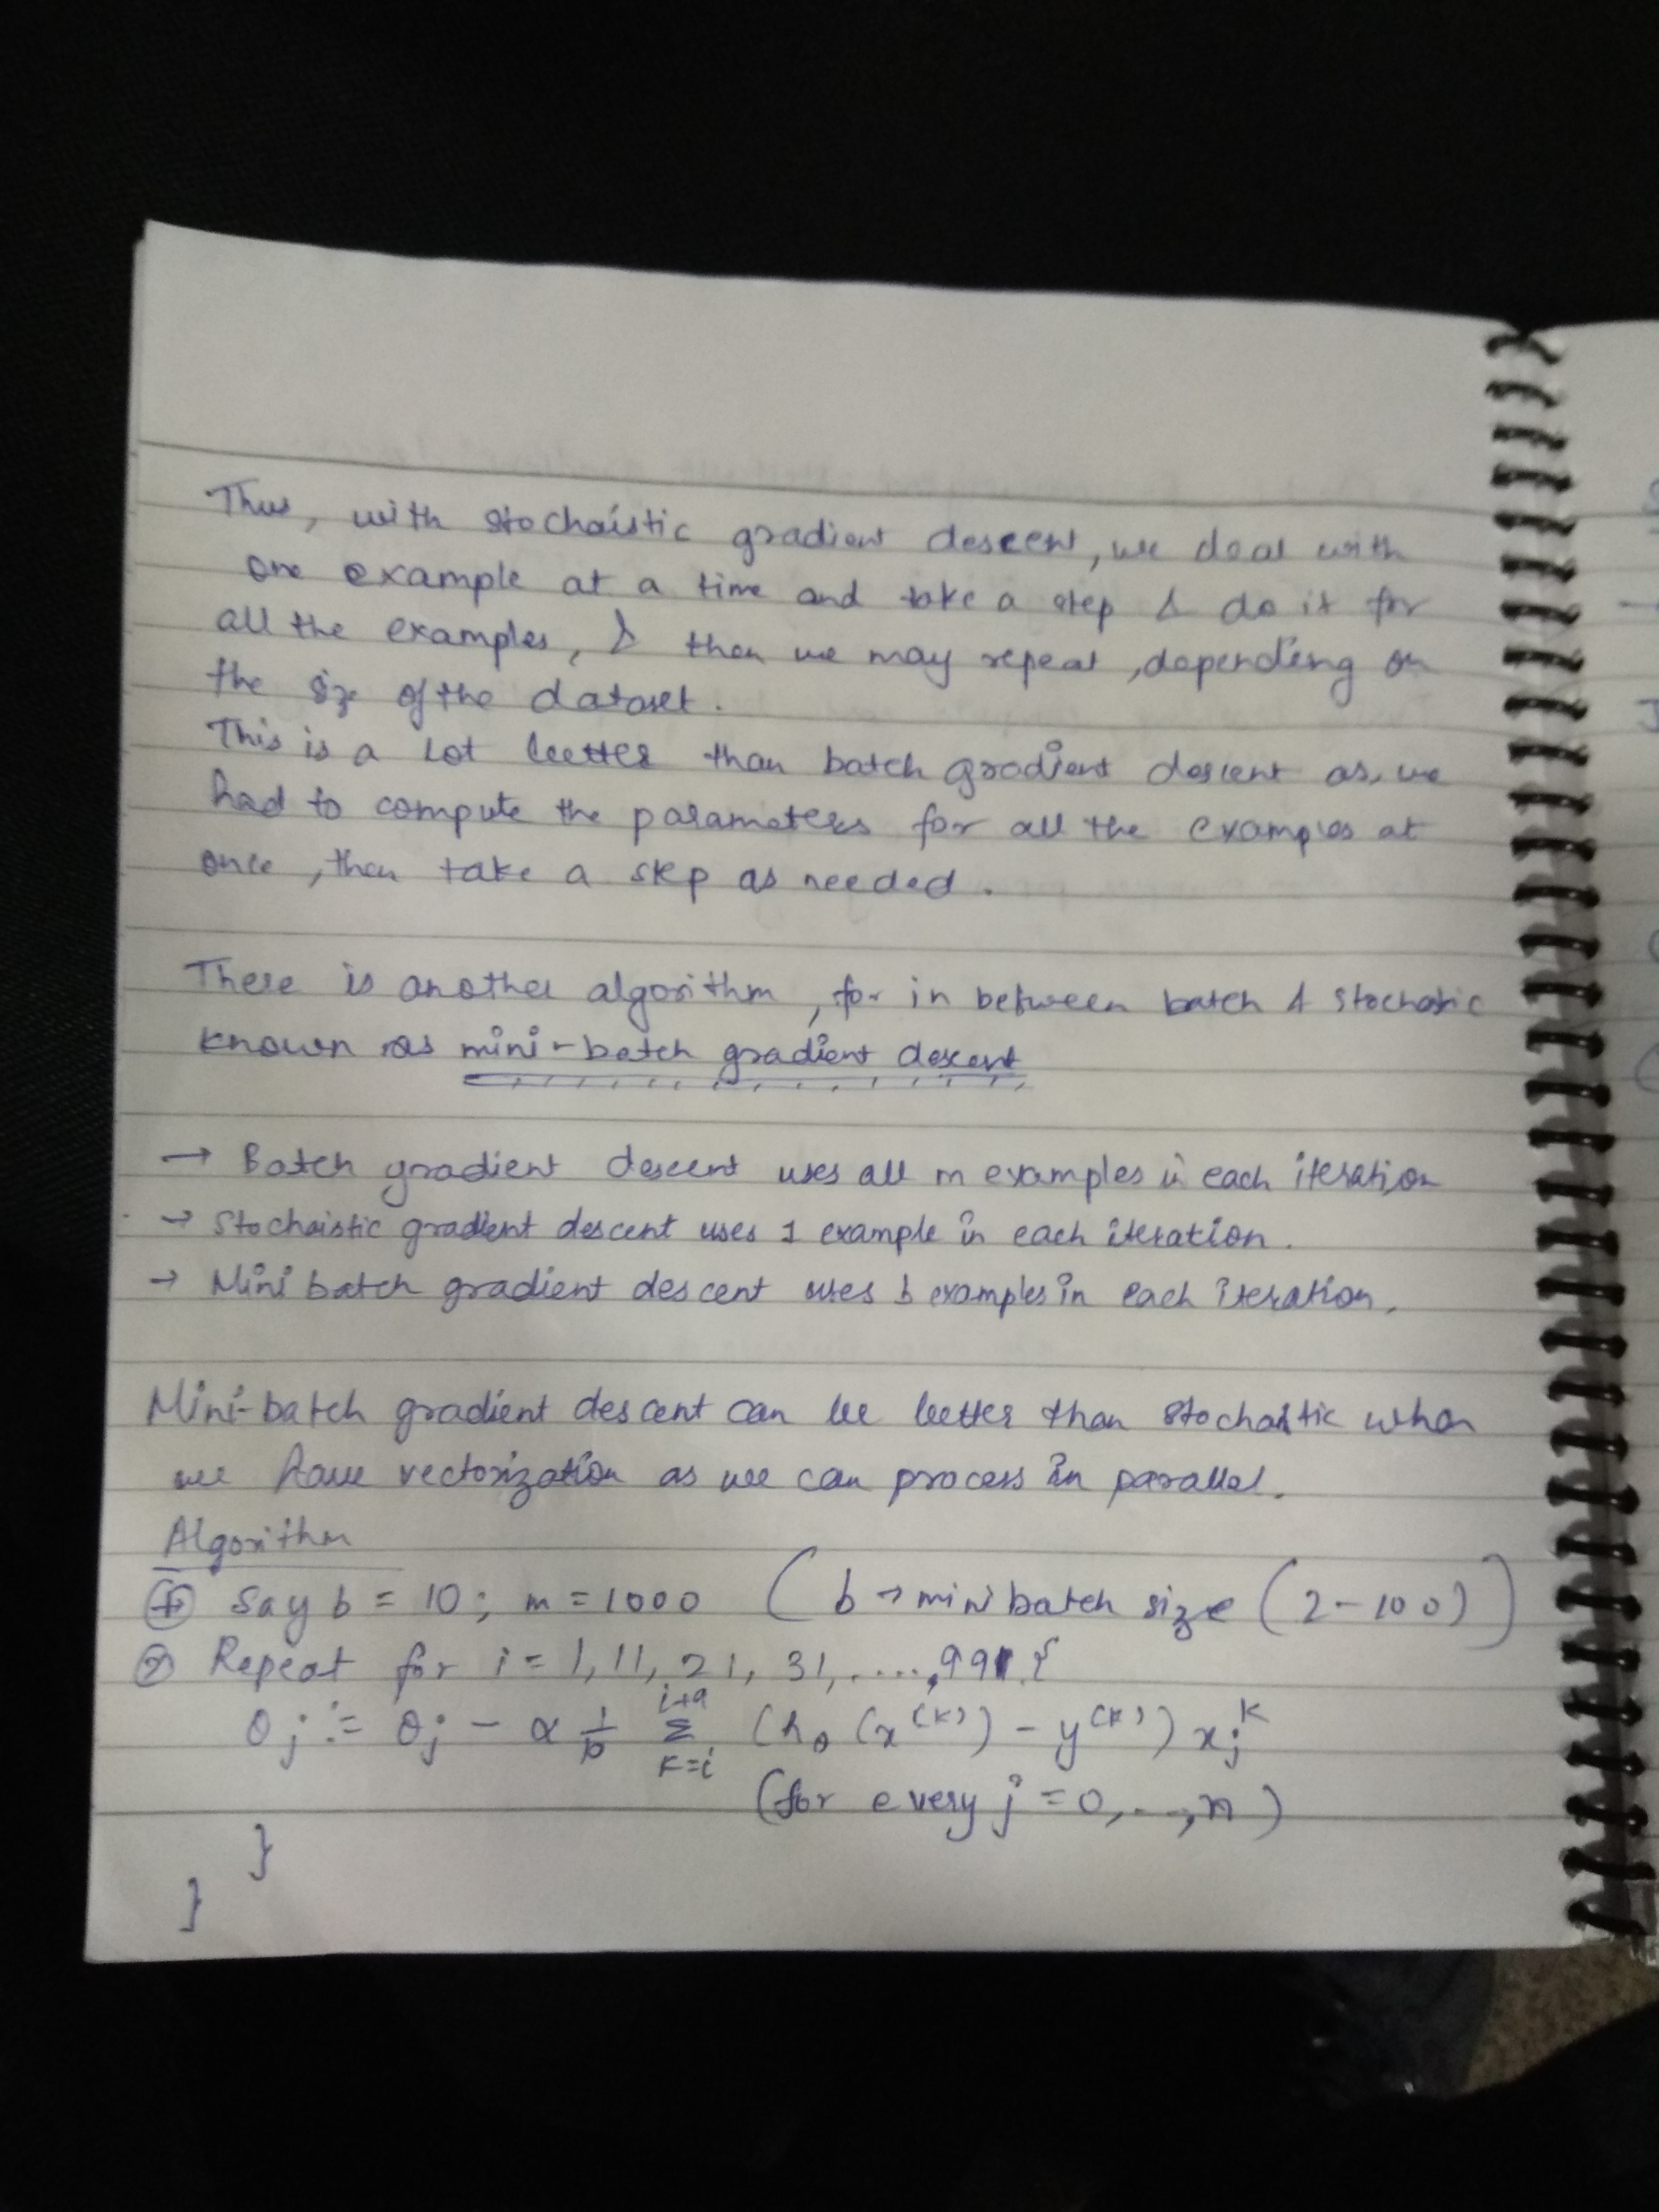 Thus, with stochaistic gradient descent, we deal with
one example at a time and take a step & do it for
all the examples, & then we may repeat, depending on
the size of the dataset.
This is a lot better than batch gradient descent as, we
had to compute the parameters for all the examples at
once, then take a step as needed.
There is another algorithm, for in between batch & stochastic
known as mini-batch gradient descent
→ Batch gradient descent uses all m examples in each iteration
→ Stochaistic gradient descent uses 1 example in each iteration.
→ Mini batch gradient descent uses b examples in each iteration.
Mini-batch gradient descent can be better than stochastic when
we have vectorization as we can process in parallel.
Algorithm
① Say b = 10; m = 1000 (b → mini batch size (2-100))
② Repeat for i = 1, 11, 21, 31, ....., 991 {
θj := θj - α 1/10 Σ_{k=i}^{i+9} (hθ(x^(k)) - y^(k)) xj^k
(for every j = 0, ..., n)
}
}